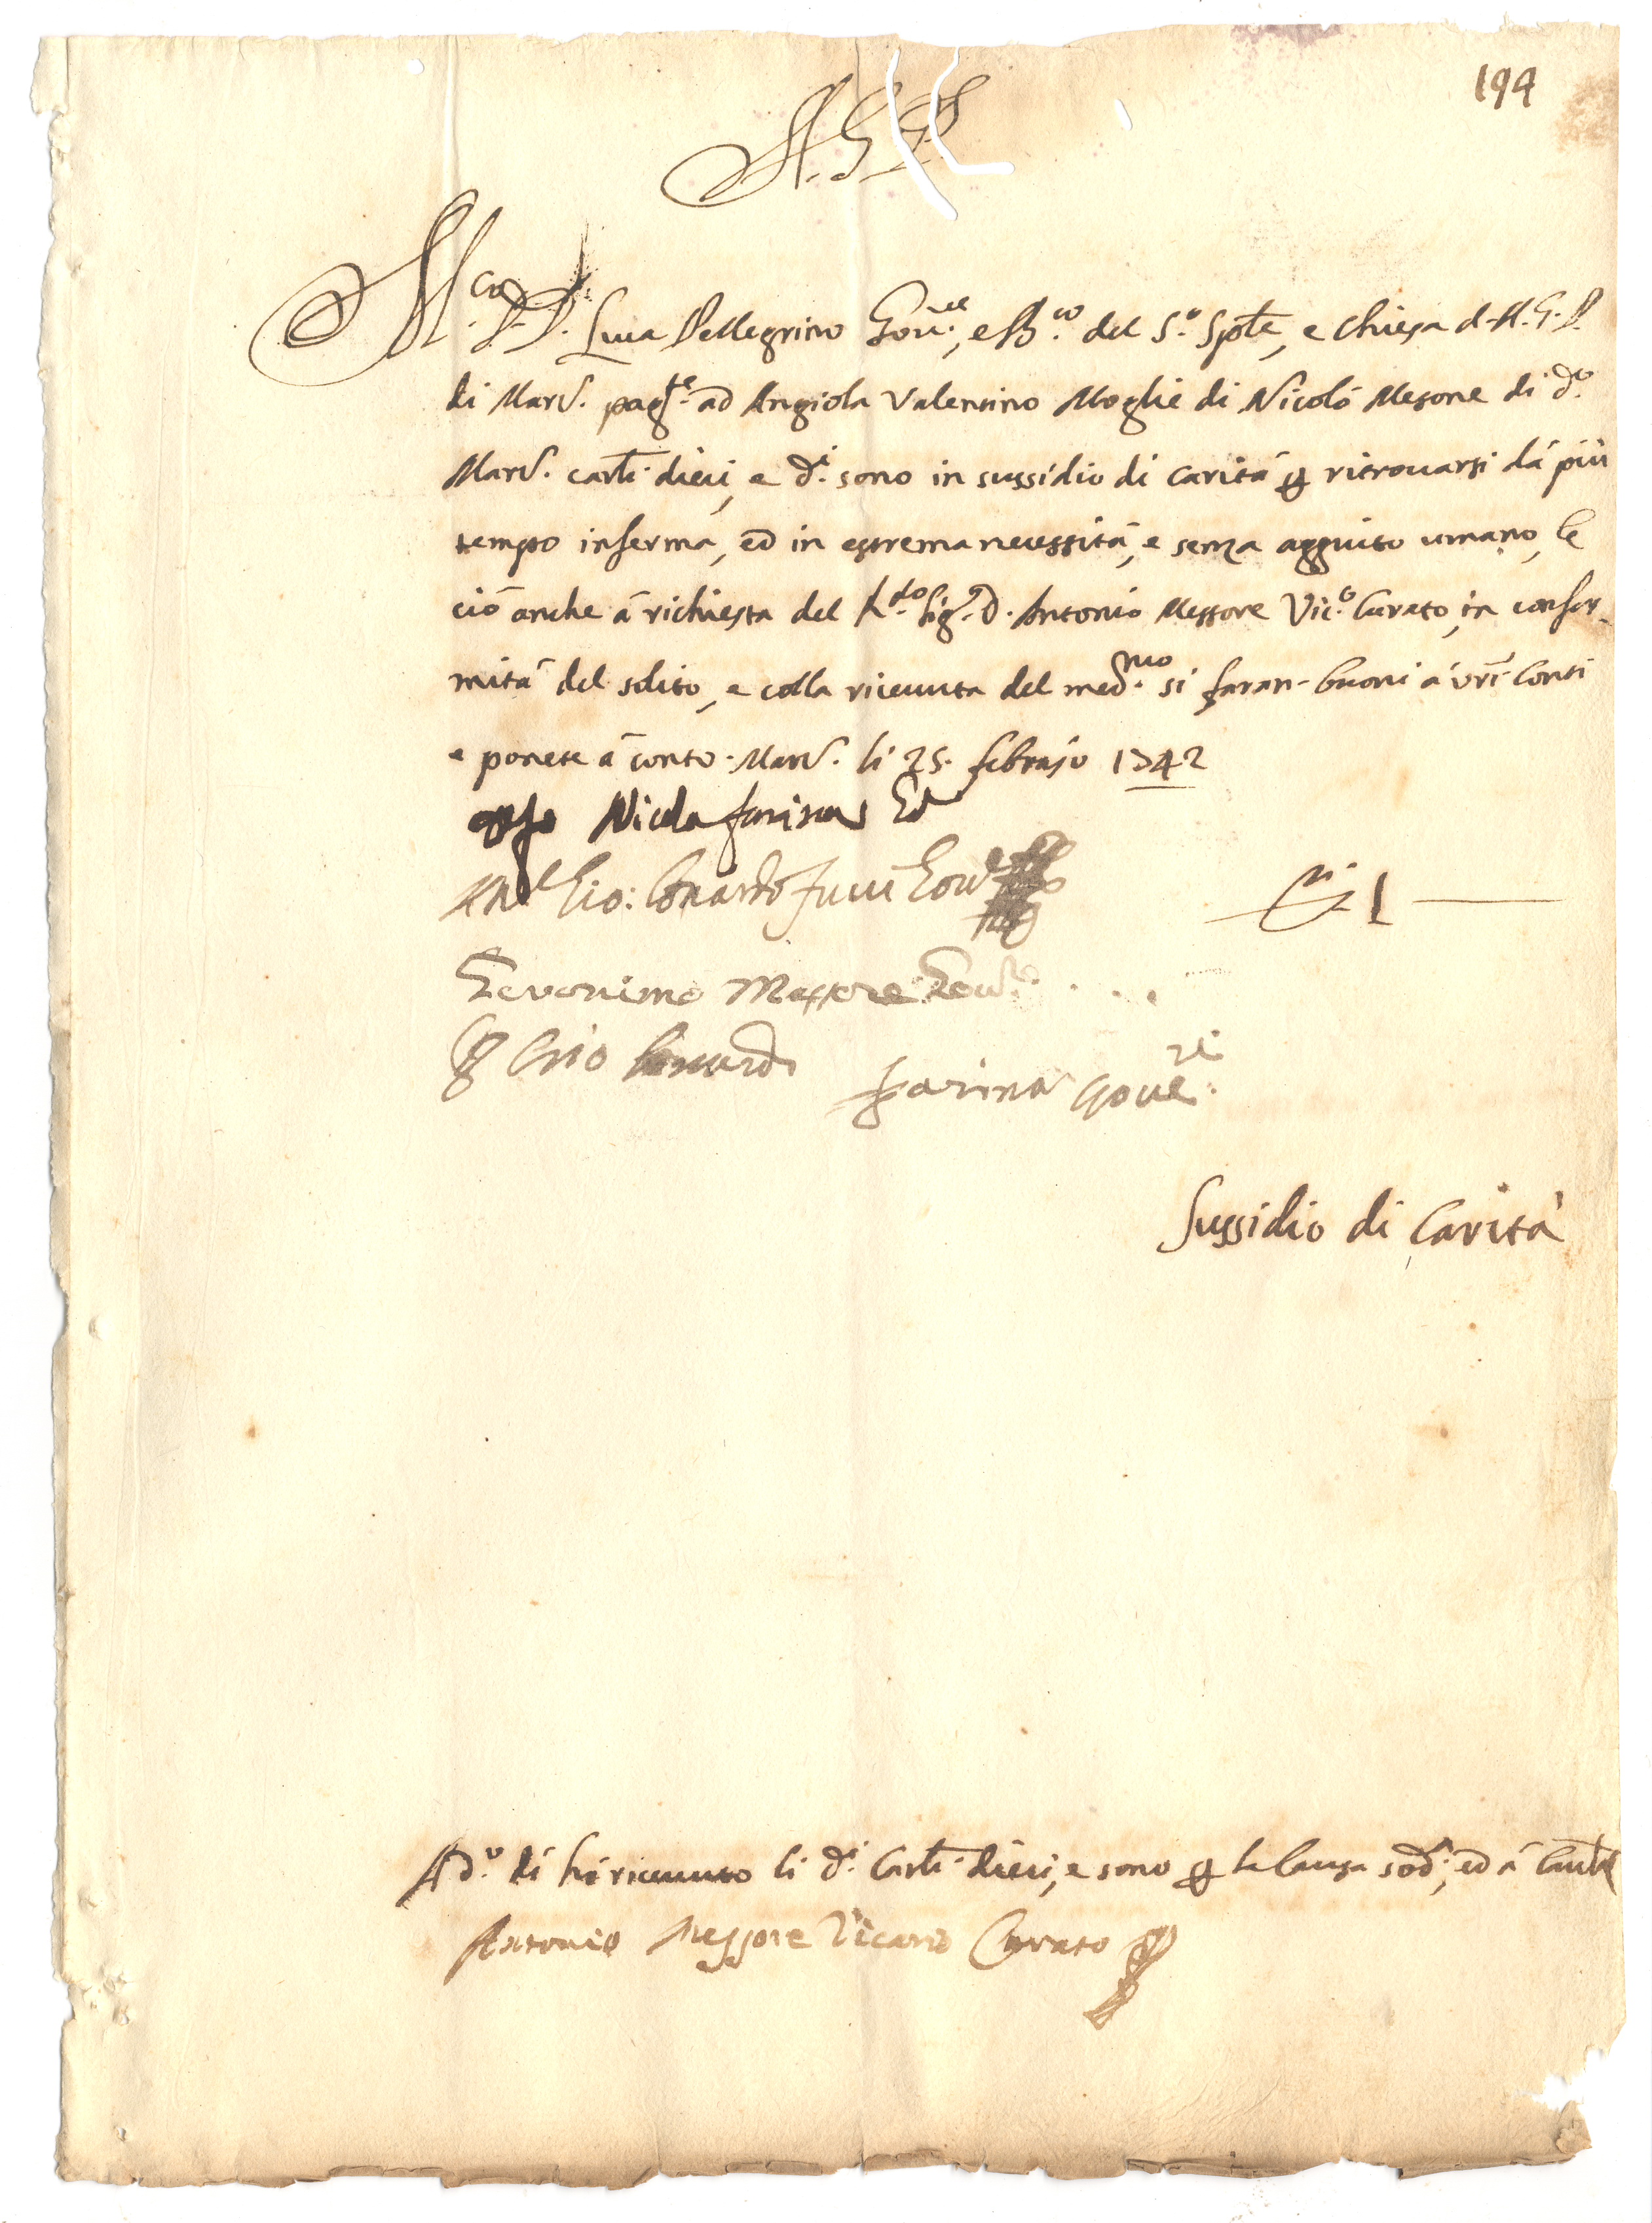 194
A. G. P.
M.co D. D. Luca Pellegrino Gov.re, e B.co del S.o Spˡᵉ, e Chiesa d. A. G. P.
di Mard. pag.te ad Angiola Valentino Moglie di Nicolò Mesone di d.o
Mard. carli dieci, e d.i sono in sussidio di carità ꝑ ritrovarsi dà più
tempo inferma, ed in estrema necessità, e senza aggiuto umano, e
ciò anche à richiesta del R.do Sig.r D. Antonio Messore Vic.o Curato, in confor-
mità del solito, e colla ricevuta del med.mo si faran- buoni à vri Conti
e ponete à conto. Mard. li 25. febrajo 1742
Nicola farina
Gio: Lonardo Gov.
Geronimo Messore Gov.re
D. 1
Gio Lonardo farina Gove.re
Sussidio di Carità
A d.o dí hò ricevuto li d.i Carli dieci, e sono ꝑ la causa sod.a, ed à
Antonio Messore Vicario Curato